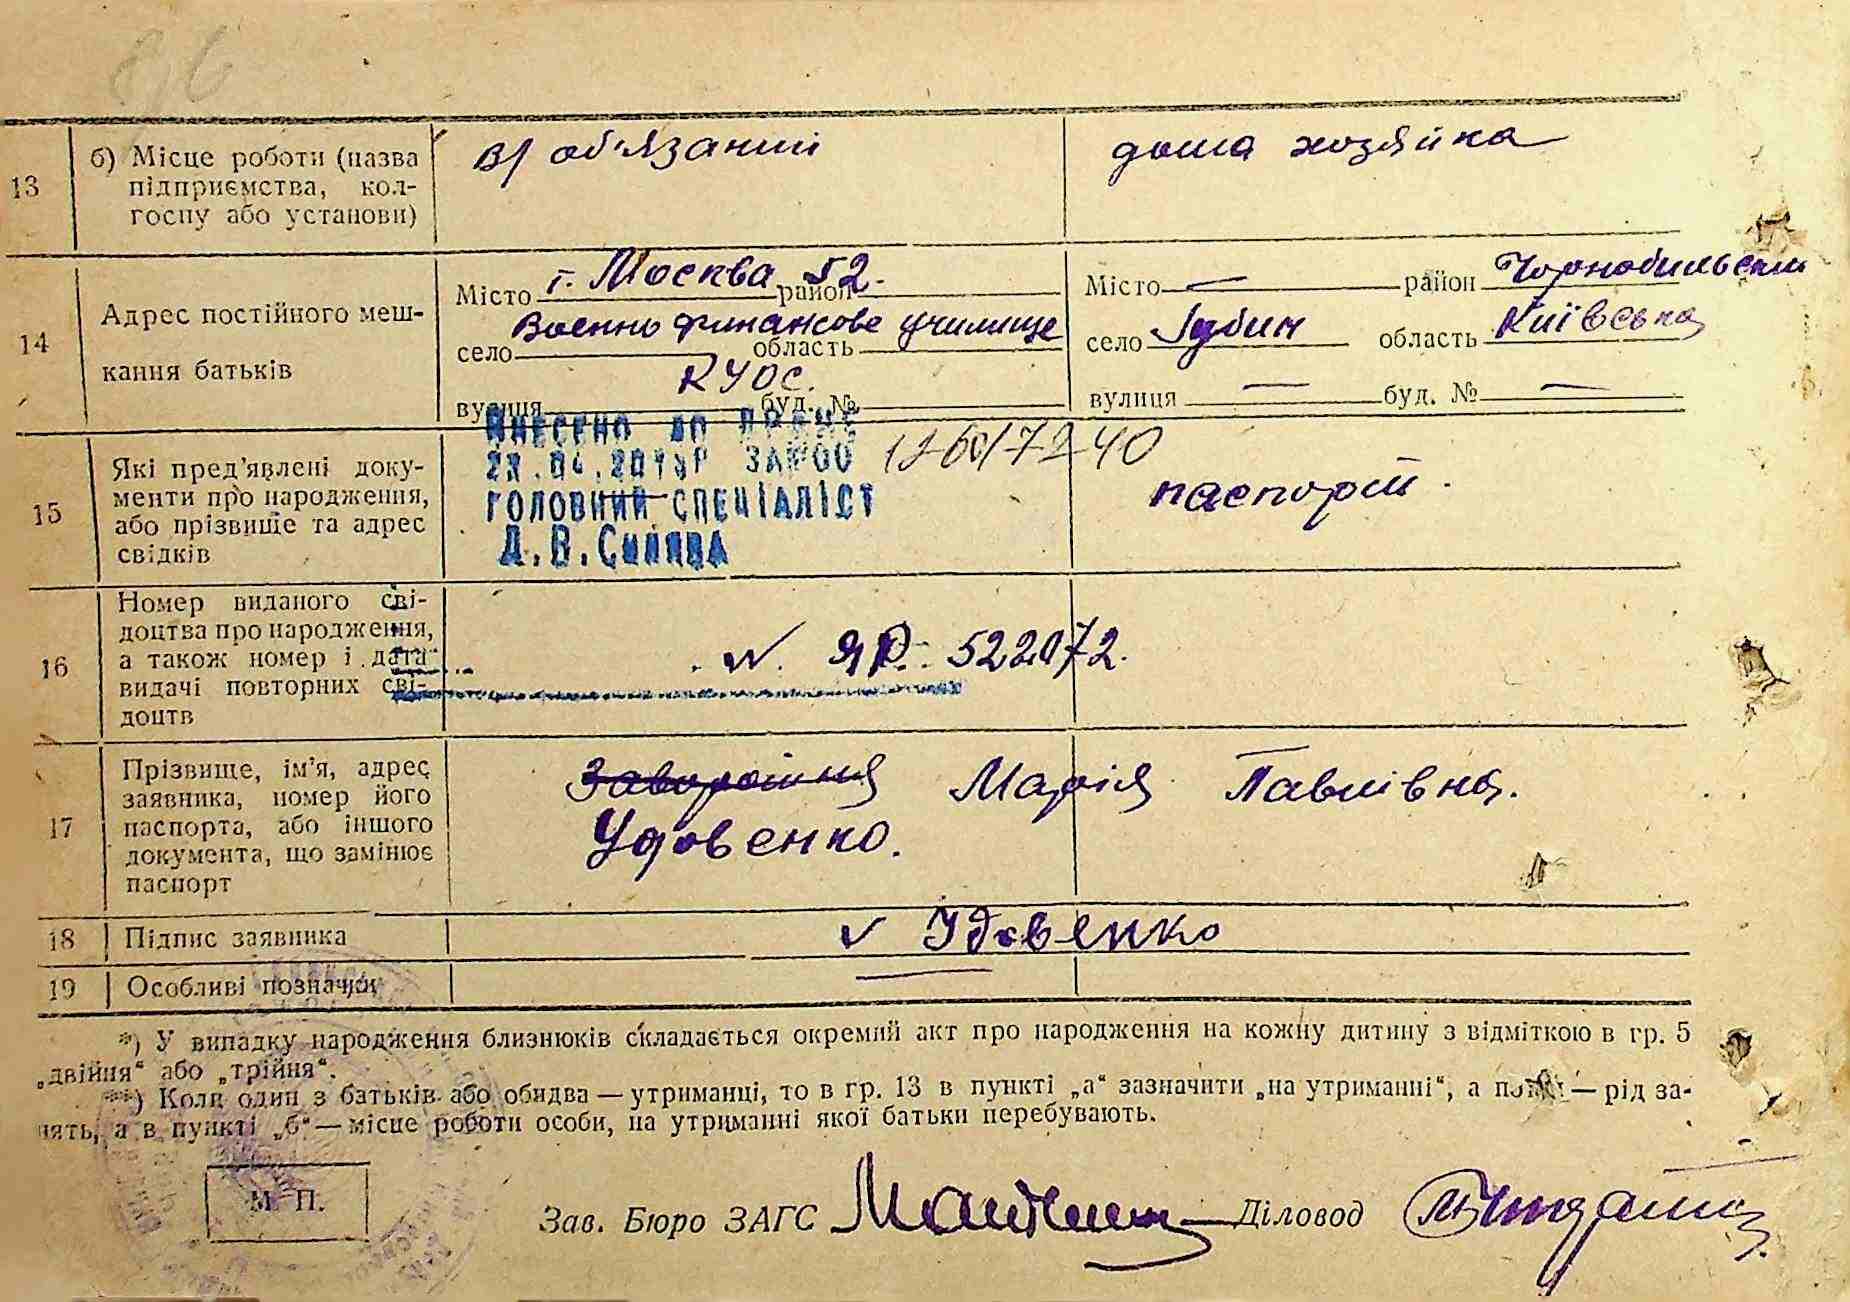 96
13
б) Місце роботи (назва
підприємства, кол-
госпу або установи)
в/обʼязаний
дома хозяйка
14
Адрес постійного меш-
кання батьків
г. Москва 52.
Місто район
Военно финансове училище
село область
КУОС.
вулиця буд. №
Місто — район Чорнобильський
село Губин область Київська
вулиця — буд. № —
15
Які пред’явлені доку-
менти про народження,
або прізвище та адрес
свідків
ВНЕСЕНО ДО ДРАЦС
ГОЛОВНИЙ СПЕЦІАЛІСТ
Д.В.
паспорт.
16
Номер виданого сві-
доцтва про народження,
а також номер і дата
видачі повторних сві-
доцтв
N. ЯР. 522072.
17
Прізвище, ім’я, адрес
заявника, номер його
паспорта, або іншого
документа, що замінює
паспорт
Заворотня Марія Павлівна.
Удовенко.
18
Підпис заявника
v Удовенко
19
Особливі позначки
*) У випадку народження близнюків складається окремий акт про народження на кожну дитину з відміткою в гр. 5
„двійня“ або „трійня“.
**) Коли один з батьків або обидва — утриманці, то в гр. 13 в пункті „а“ зазначити „на утриманні“, а — рід за-
нять, а в пункті „б“ — місце роботи особи, на утриманні якої батьки перебувають.
М. П.
Зав. Бюро ЗАГС
Діловод